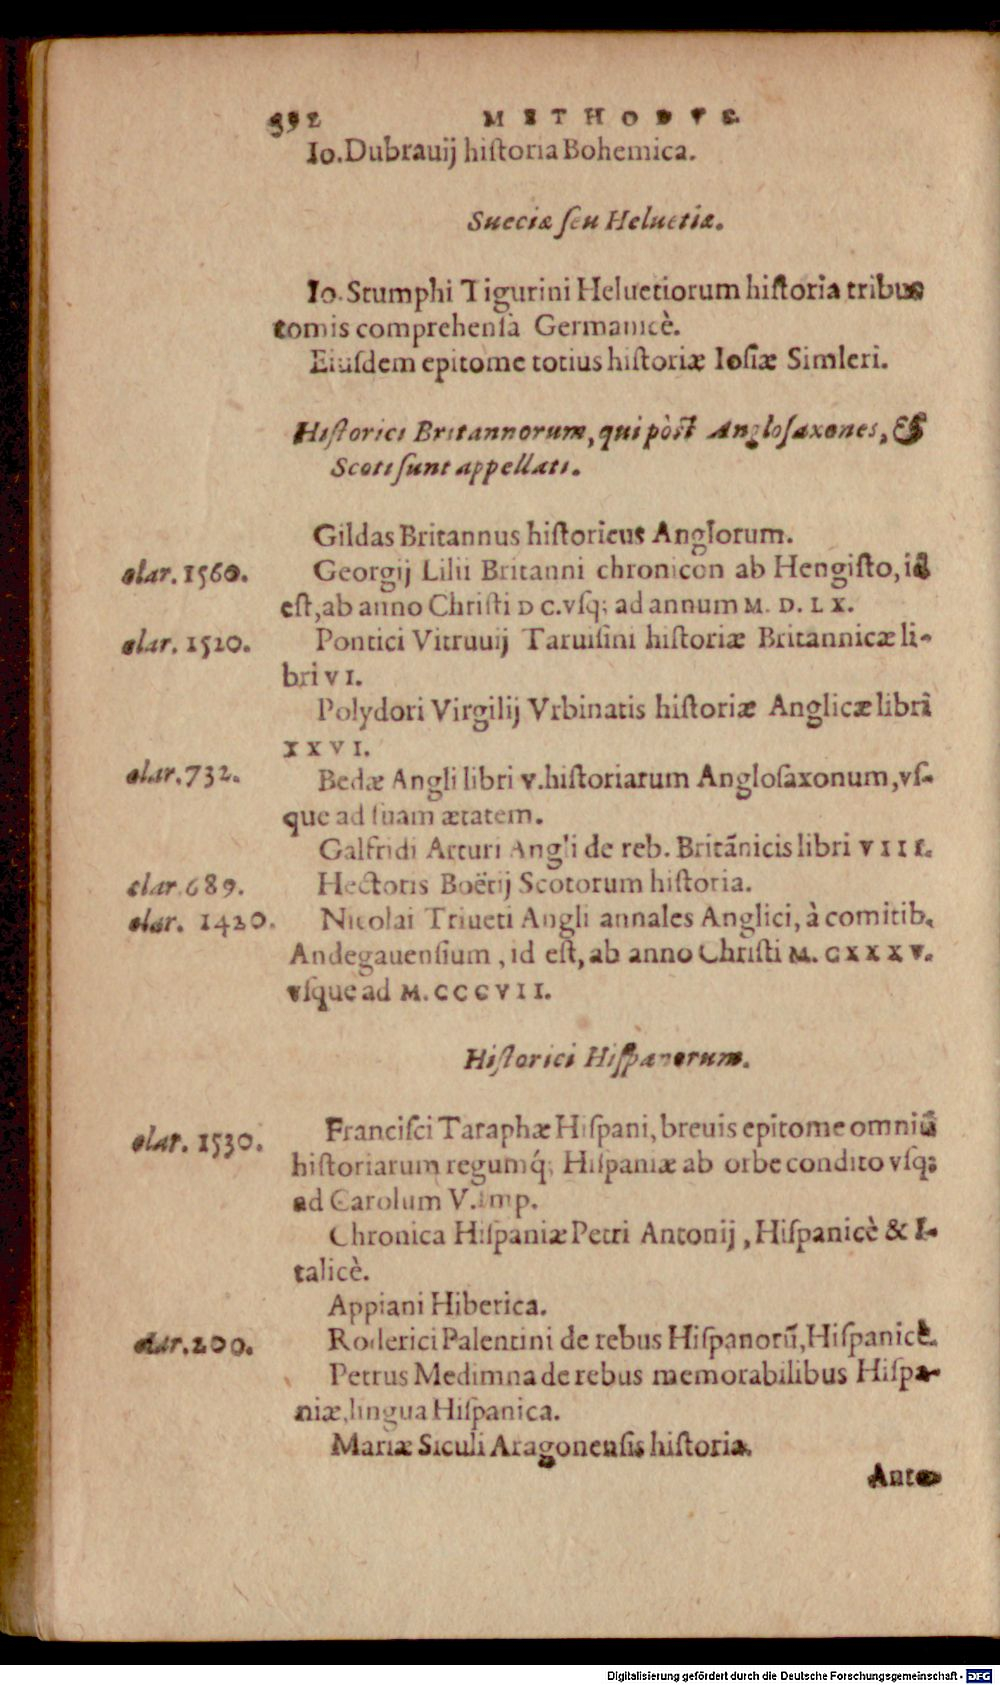 392 METHODVS
Io. Dubrauij historia Bohemica.
Sueciæ ſeu Heluetiæ.
Io. Stumphi Tigurini Heluetiorum hiſtoria tribus
tomis comprehenſa Germanicè.
Eiuſdem epitome totius hiſtoriæ Ioſiæ Simleri.
Hiſtorici Britannorum, qui pòst Angloſaxones, &
Scoti ſunt appellati.
Gildas Britannus hiſtoricus Anglorum.
clar. 1560. Georgij Lilii Britanni chronicon ab Hengiſto, id
eſt, ab anno Chriſti D C. vſq; ad annum M. D. L X.
clar. 1520. Pontici Vitruuij Taruiſini hiſtoriæ Britannicæ li-
bri V I.
Polydori Virgilij Vrbinatis hiſtoriæ Anglicæ libri
X X V I.
clar. 732. Bedæ Angli libri V. hiſtoriarum Angloſaxonum, vſ-
que ad ſuam ætatem.
Galfridi Arturi Angli de reb. Britãnicis libri V I I I.
clar. 689. Hectoris Boëtij Scotorum hiſtoria.
clar. 1420. Nicolai Triueti Angli annales Anglici, à comitib.
Andegauenſium, id eſt, ab anno Chriſti M. C X X X V.
vſque ad M. C C C V I I.
Hiſtorici Hiſpanorum.
clar. 1530. Franciſci Taraphæ Hiſpani, breuis epitome omniũ
hiſtoriarum regumq́; Hiſpaniæ ab orbe condito vſq;
ad Carolum V. imp.
Chronica Hiſpaniæ Petri Antonij, Hiſpanicè & I-
talicè.
Appiani Hiberica.
clar. 200. Roderici Palentini de rebus Hiſpanorũ, Hiſpanicè.
Petrus Medimna de rebus memorabilibus Hiſpa-
niæ, lingua Hiſpanica.
Mariæ Siculi Aragonenſis hiſtoria.
Anto-
Digitalisierung gefördert durch die Deutsche Forschungsgemeinschaft - DFG